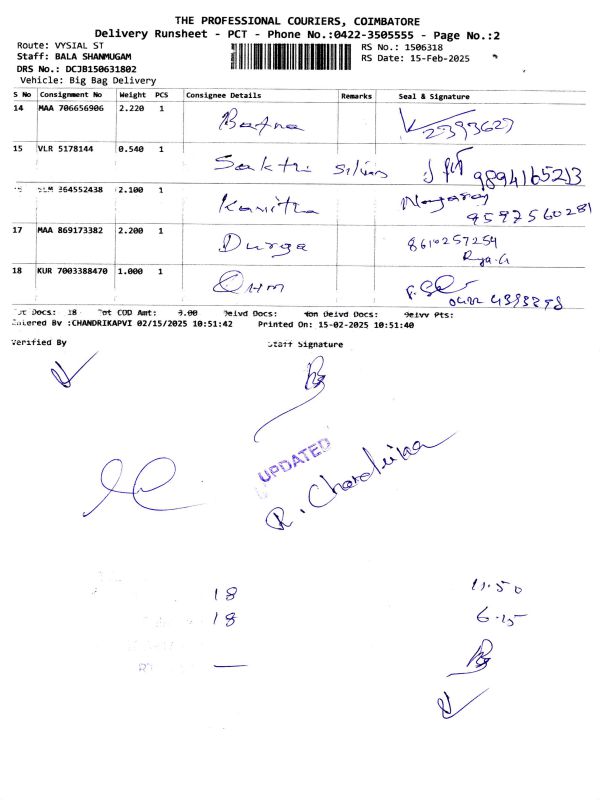 THE PROFESSIONAL COURIERS, COIMBATORE
Delivery Runsheet - PCT - Phone No.:0422-3505555 - Page No.:2
Route: VYSIAL ST RS No.: 1506318
Staff: BALA SHANMUGAM RS Date: 15-Feb-2025
DRS No.: DCJB150631802
Vehicle: Big Bag Delivery
S No Consignment No Weight PCS Consignee Details Remarks Seal & Signature
14 MAA 706656906 2.220 1 Bafna 2393627
15 VLR 5178144 0.540 1 Sakthi silvers 9894165213
364552438 2.100 1 Kavitha Nagaraj 9597560281
17 MAA 869173382 2.200 1 Durga 8610257254
18 KUR 7003388470 1.000 1 OHM 0422 4393298
Docs: 18 Tot COD Amt: 0.00 Delvd Docs: Non Delvd Docs: Delvy Pts:
Entered By :CHANDRIKAPVI 02/15/2025 10:51:42 Printed On: 15-02-2025 10:51:40
Verified By Staff Signature
UPDATED
R. Chandrika
18 11.50
18 6.15